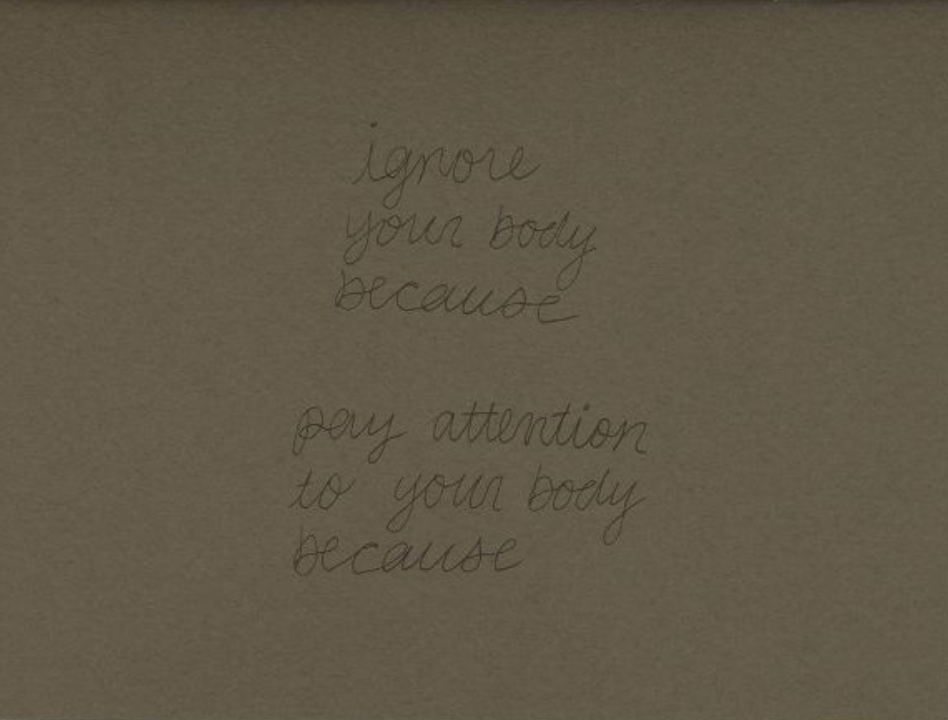 ignore
your body
because
pay attention
to your body
because